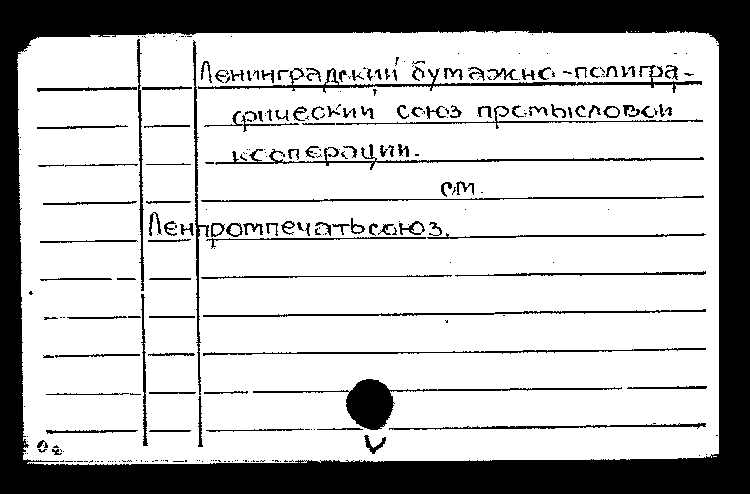 Ленинградский бумажно-полигра-
фический союз промысловой
кооперации.
см.
Ленпромпечатьсоюз.